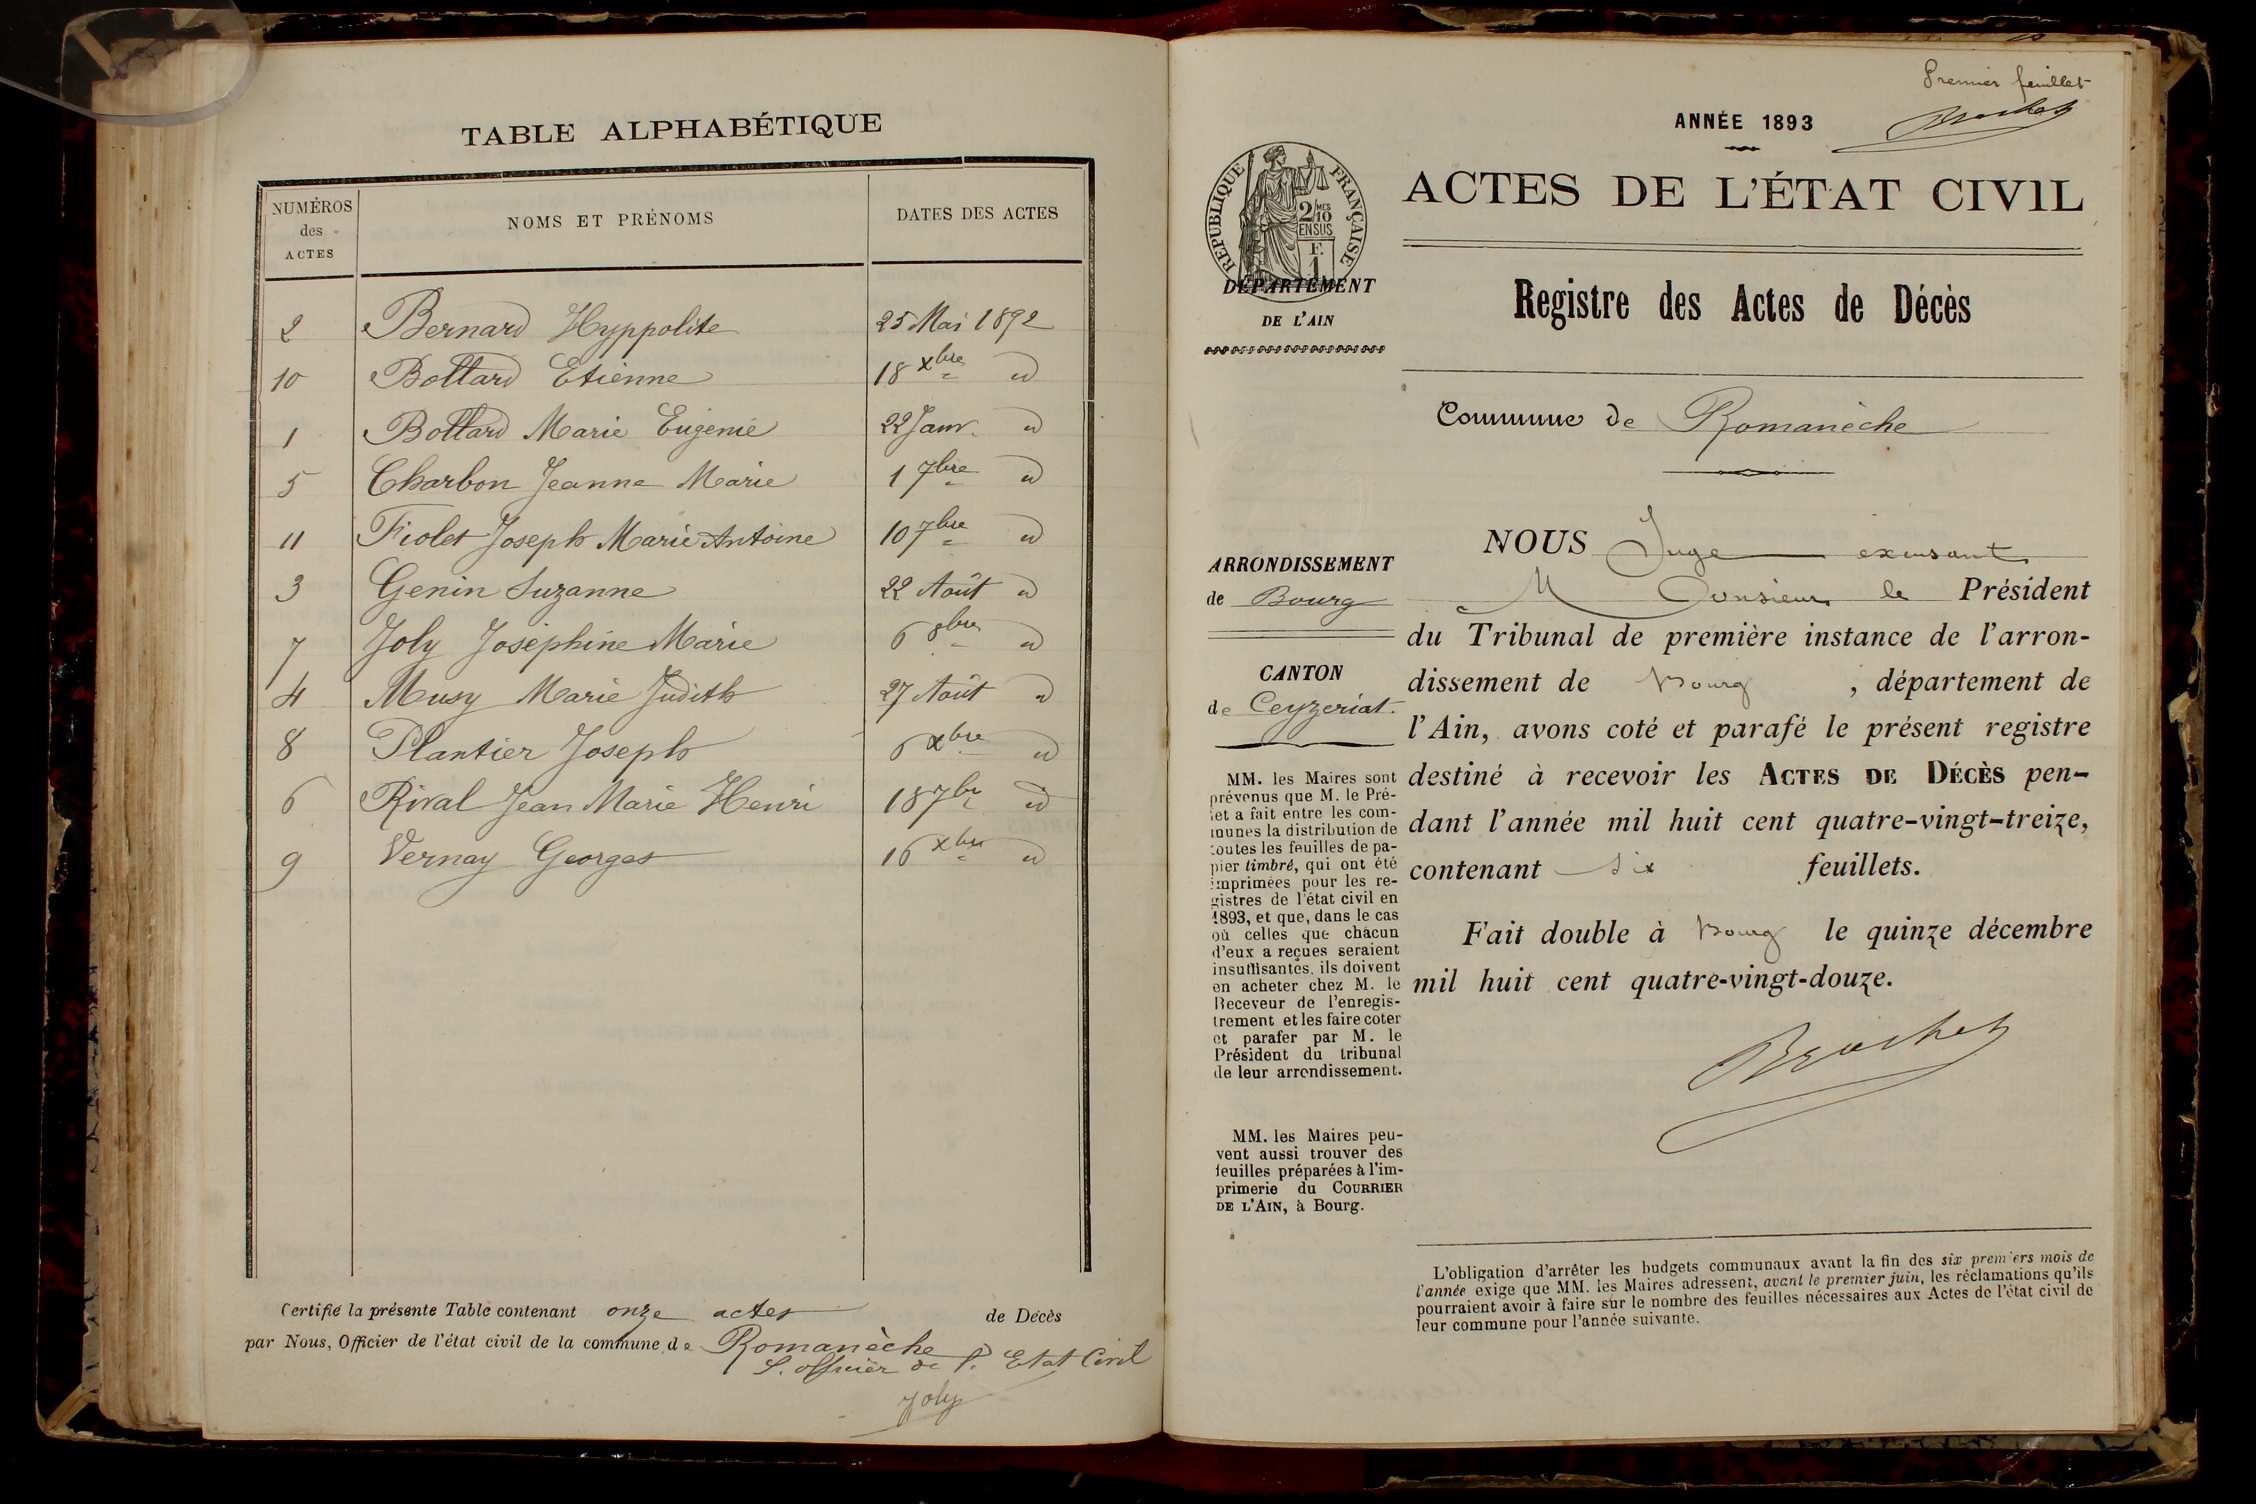 TABLE ALPHABÉTIQUE
NUMÉROS des ACTES
NOMS ET PRÉNOMS
DATES DES ACTES
2 Bernard Hyppolite 25 Mai 1892
10 Bottard Etienne 18 Xbre d
1 Bottard Marie Eugénie 22 Janv. d
5 Charbon Jeanne Marie 1 7bre d
11 Fiolet Joseph Marie Antoine 10 7bre d
3 Genin Suzanne 22 Août d
7 Joly Joséphine Marie 6 8bre d
4 Musy Marie Judith 27 Août d
8 Plantier Joseph 6 Xbre d
6 Rival Jean Marie Henri 18 7bre d
9 Vernay Georges 16 Xbre d
Certifié la présente Table contenant onze actes de Décès
par Nous, Officier de l'état civil de la commune de Romanèche
L. officier de l. Etat Civil
Joly
Premier feuillet
ANNÉE 1893
RÉPUBLIQUE FRANÇAISE
2 MES
10
EN SUS
F.
1
ACTES DE L'ÉTAT CIVIL
DÉPARTEMENT
DE L'AIN
Registre des Actes de Décès
Commune de Romanèche
ARRONDISSEMENT
de Bourg
CANTON
de Ceyzeriat.
MM. les Maires sont
prévenus que M. le Pré-
fet a fait entre les com-
munes la distribution de
toutes les feuilles de pa-
pier timbré, qui ont été
imprimées pour les re-
gistres de l'état civil en
1893, et que, dans le cas
où celles que chacun
d'eux a reçues seraient
insuffisantes, ils doivent
en acheter chez M. le
Receveur de l'enregis-
trement et les faire coter
et parafer par M. le
Président du tribunal
de leur arrondissement.
MM. les Maires peu-
vent aussi trouver des
feuilles préparées à l'im-
primerie du COURRIER
DE L'AIN, à Bourg.
NOUS Juge excusant
Monsieur le Président
du Tribunal de première instance de l'arron-
dissement de Bourg, département de
l'Ain, avons coté et parafé le présent registre
destiné à recevoir les ACTES DE DÉCÈS pen-
dant l'année mil huit cent quatre-vingt-treize,
contenant six feuillets.
Fait double à Bourg le quinze décembre
mil huit cent quatre-vingt-douze.
L'obligation d'arrêter les budgets communaux avant la fin des six premiers mois de
l'année exige que MM. les Maires adressent, avant le premier juin, les réclamations qu'ils
pourraient avoir à faire sur le nombre des feuilles nécessaires aux Actes de l'état civil de
leur commune pour l'année suivante.